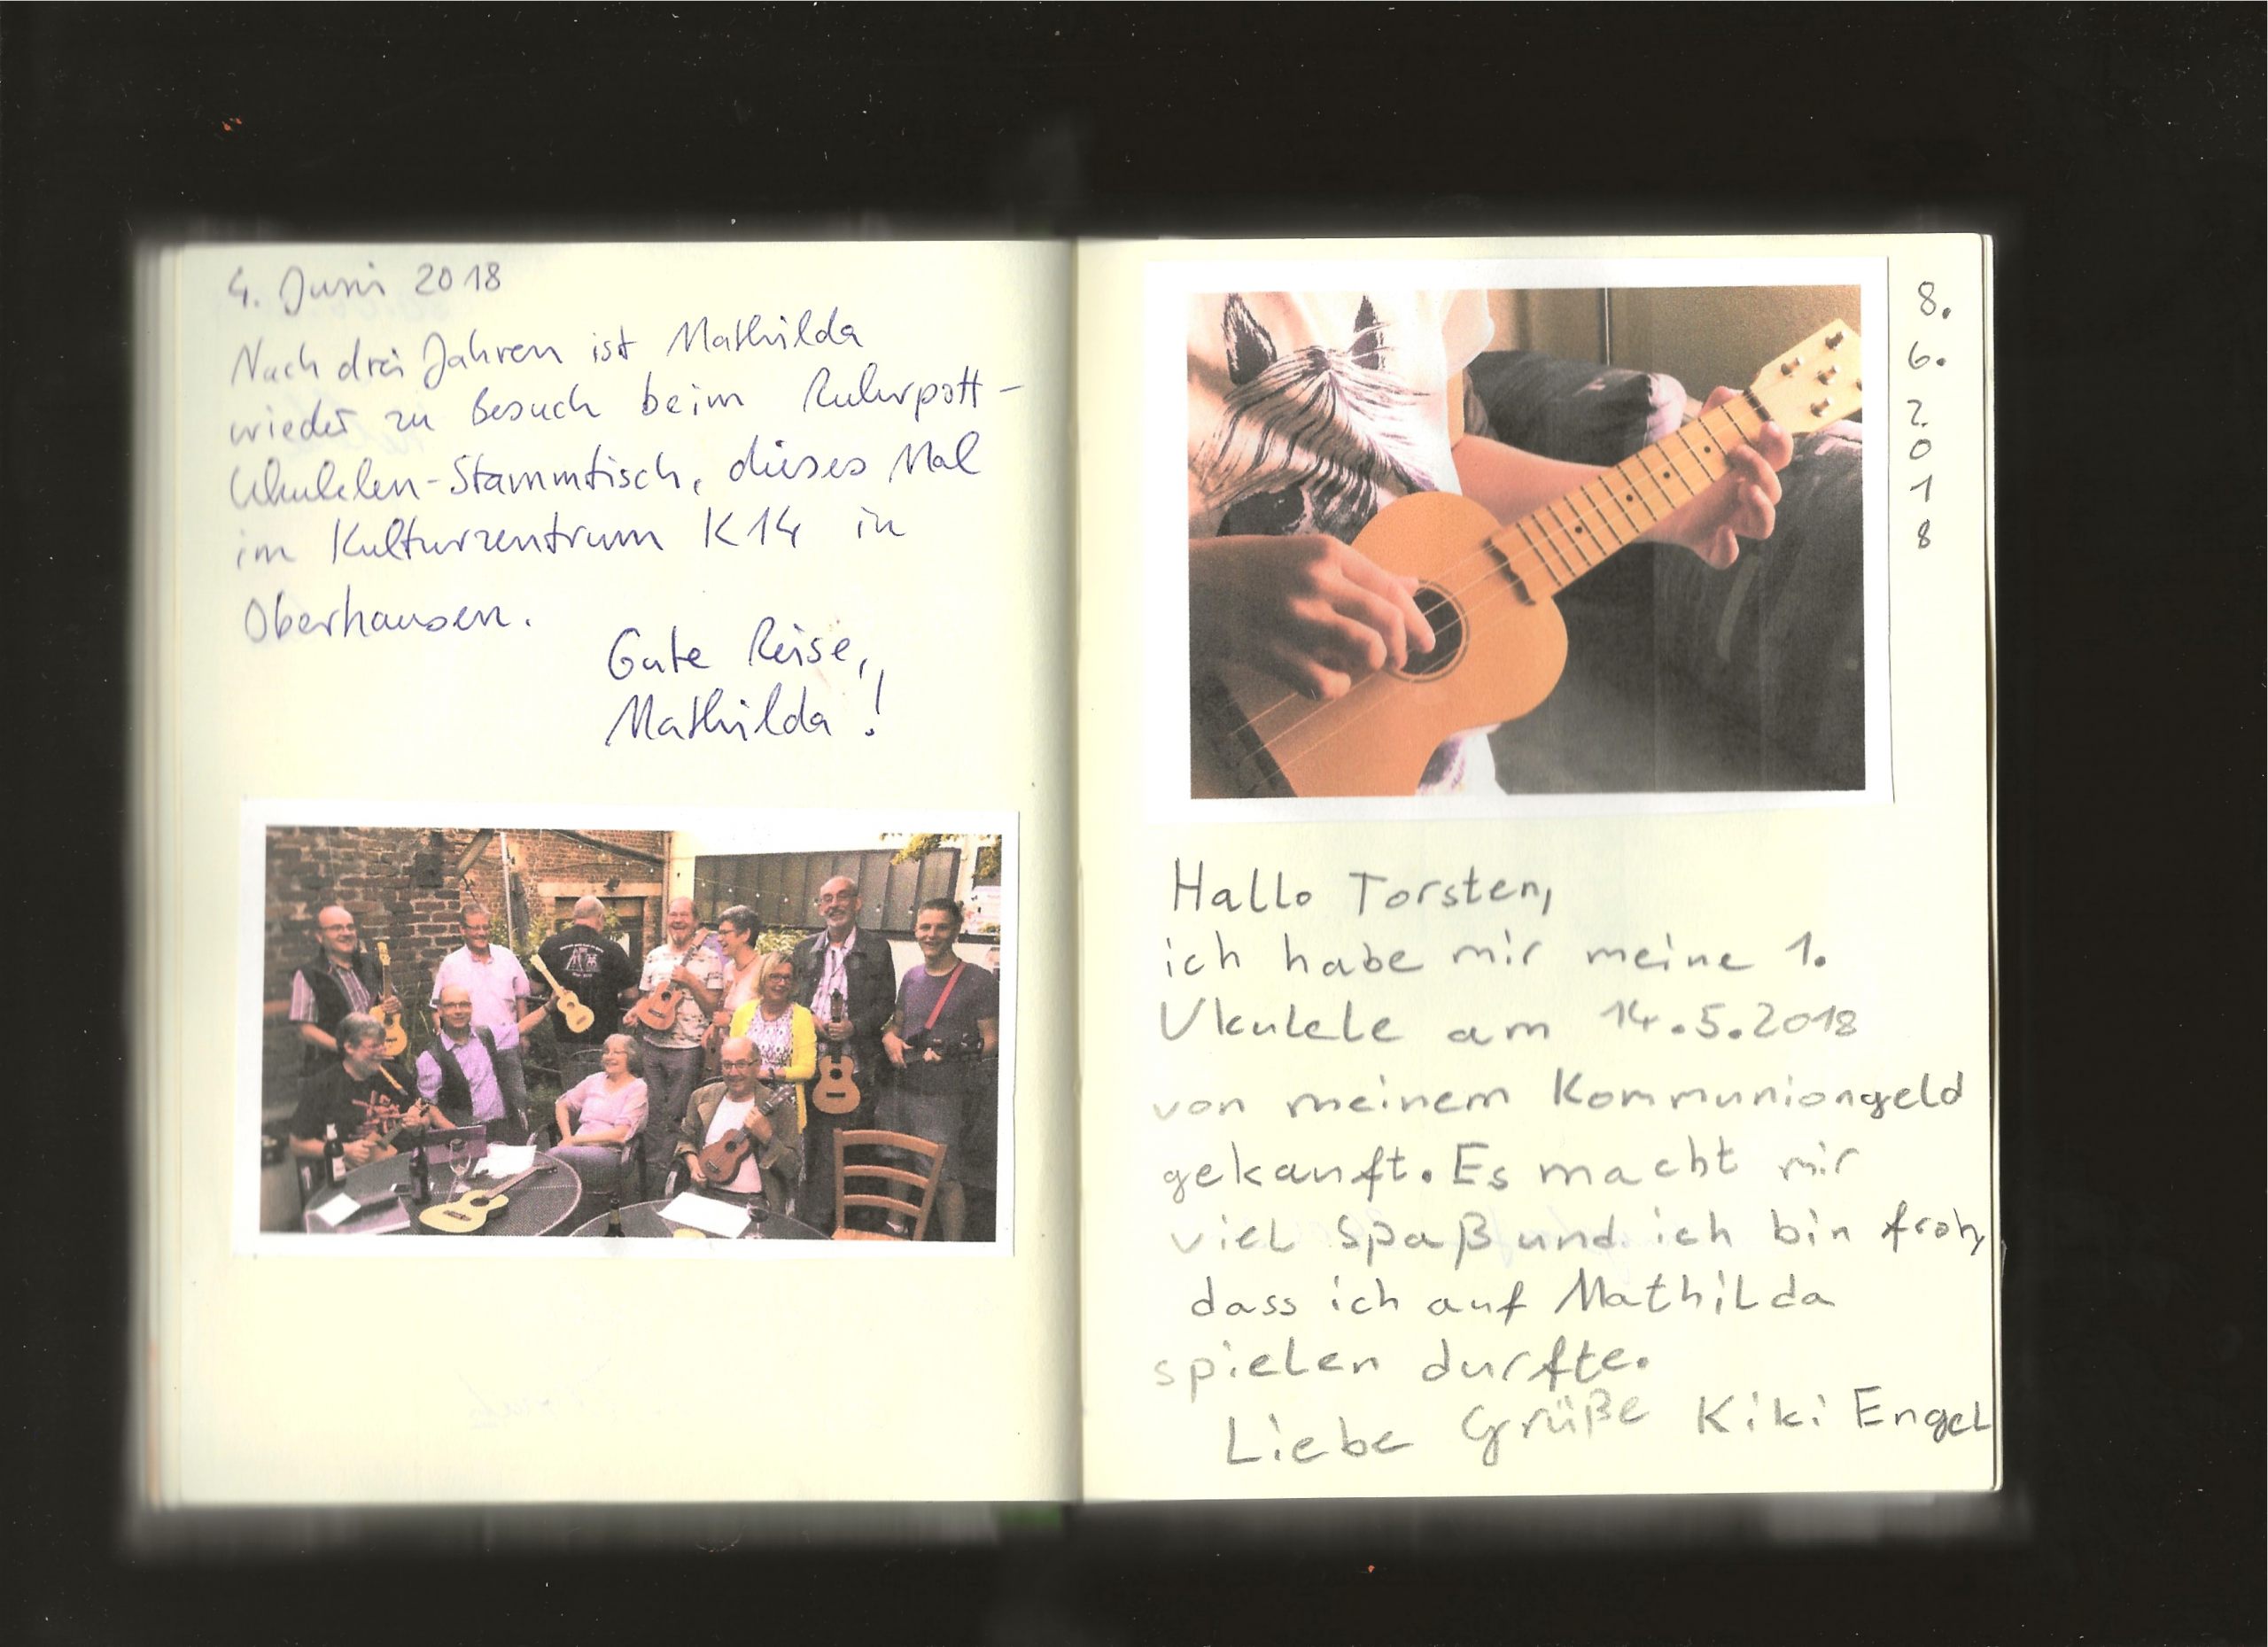 4. Juni 2018
Nach drei Jahren ist Mathilda
wieder zu Besuch beim Ruhrpott-
Ukulelen-Stammtisch, dieses Mal
im Kulturzentrum K14 in
Oberhausen.
Gute Reise,
Mathilda!
8.
6.
2
0
1
8
Hallo Torsten,
ich habe mir meine 1.
Ukulele am 14.5.2018
von meinem Kommuniongeld
gekauft. Es macht mir
viel Spaß und ich bin froh,
dass ich auf Mathilda
spielen durfte.
Liebe Grüße Kiki Engel